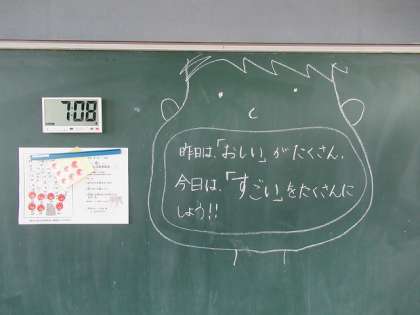 7:08
昨日は、「おしい」がたくさん。
今日は、「すごい」をたくさんに
しよう!!